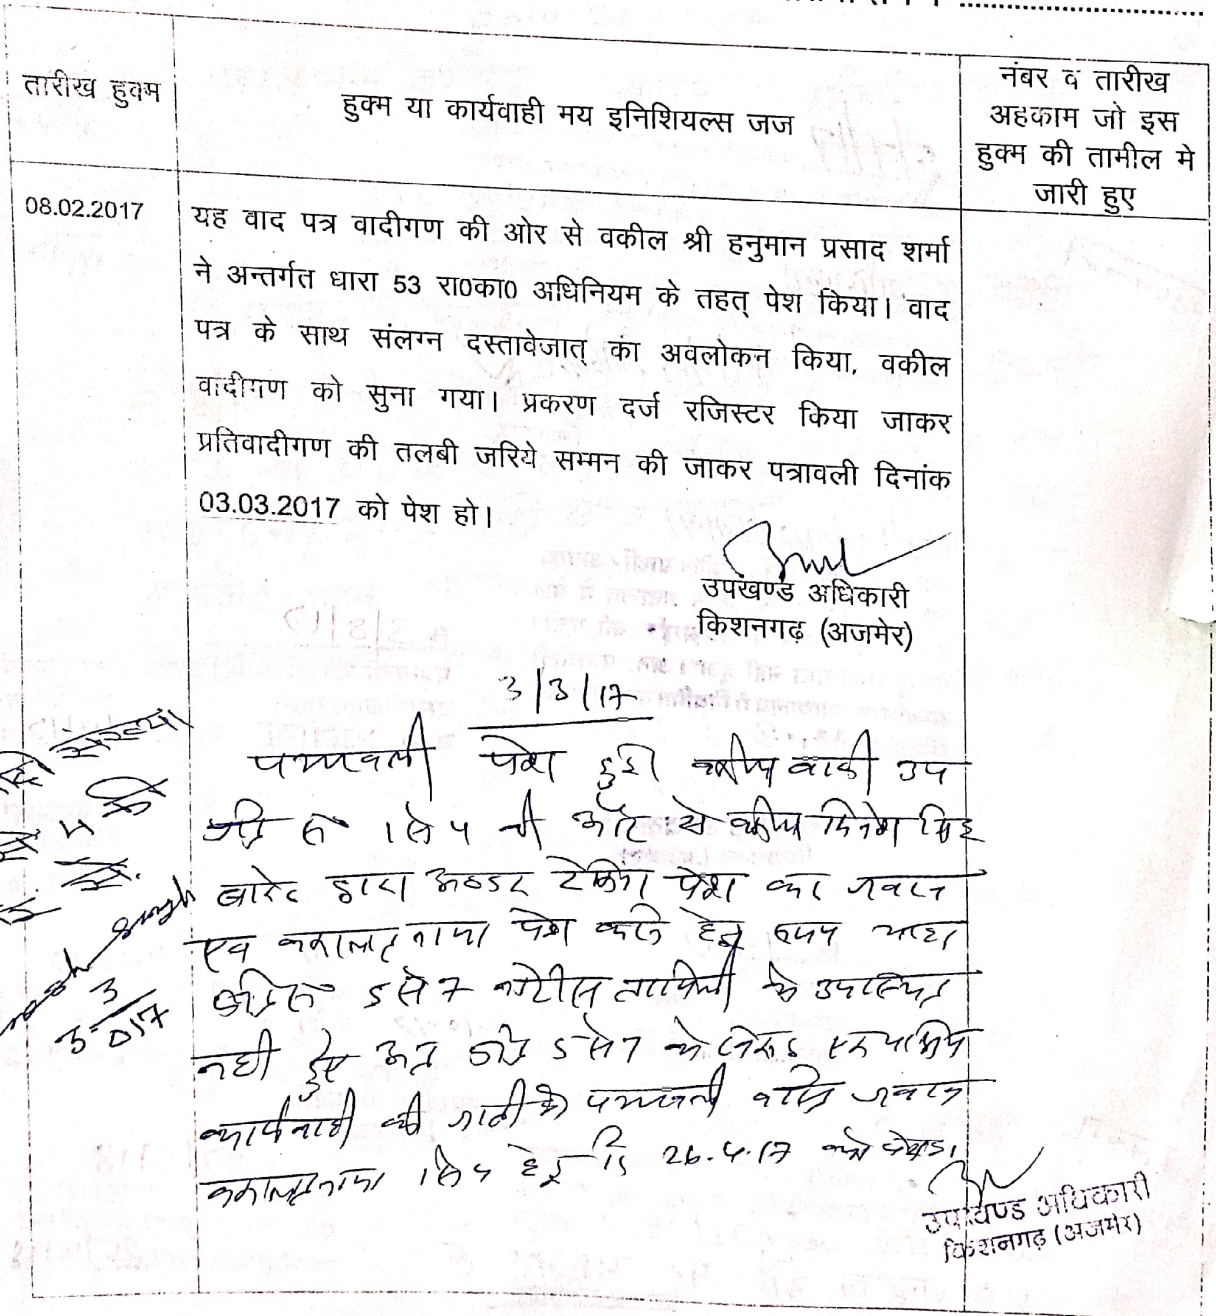 तारीख हुक्म
हुक्म या कार्यवाही मय इनिशियल्स जज
नंबर व तारीख
अहकाम जो इस
हुक्म की तामील मे
जारी हुए
08.02.2017
यह वाद पत्र वादीगण की ओर से वकील श्री हनुमान प्रसाद शर्मा
ने अन्तर्गत धारा 53 रा0का0 अधिनियम के तहत् पेश किया। वाद
पत्र के साथ संलग्न दस्तावेजात् का अवलोकन किया, वकील
वादीगण को सुना गया। प्रकरण दर्ज रजिस्टर किया जाकर
प्रतिवादीगण की तलबी जरिये सम्मन की जाकर पत्रावली दिनांक
03.03.2017 को पेश हो।
उपखण्ड अधिकारी
किशनगढ़ (अजमेर)
3/3/17
पत्रावली पेश हुई वकील वादी उप
1 से 4 की ओर से वकील सिंह
बारेठ द्वारा अण्डर टेकिंग पेश कर जवाब
एवं वकालतनामा पेश करने हेतु समय चाहा
5 से 7 नोटिस तामिली के उपस्थित
नही हुए अतः 5 से 7 के विरुद्ध एकपक्षीय
कार्यवाही की जाती है पत्रावली वास्ते जवाब
वकालतनामा 1 से 4 हेतु दि 26.4.17 को पेश हो।
उपखण्ड अधिकारी
किशनगढ़ (अजमेर)
singh
3